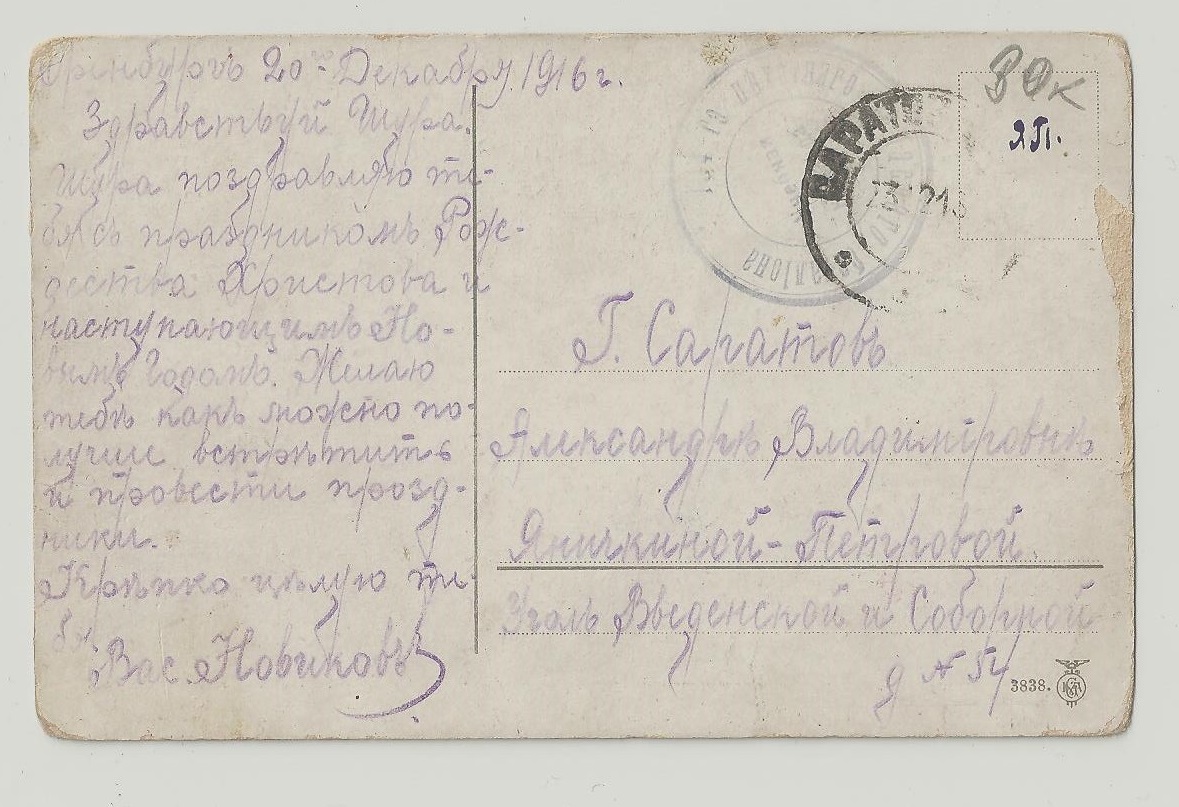 Оренбургъ 20-Декабря 1916 г.
Здравствуй Шура.
Шура поздравляю те-
бя съ праздникомъ Рож-
дества Христова и
наступающимъ Но-
вымъ Годомъ. Желаю
тебѣ какъ можно по-
лучше встрѣтить
и провести празд-
ники.
Крѣпко цѣлую те-
бя.
Вас. Новиковъ
30к
ЯП.
САРАТОВ
баталіона
Г. Саратовъ
Александрѣ Владимiровнѣ
Яничкиной-Петровой
Уголъ Введенской и Соборной
д №
3838.